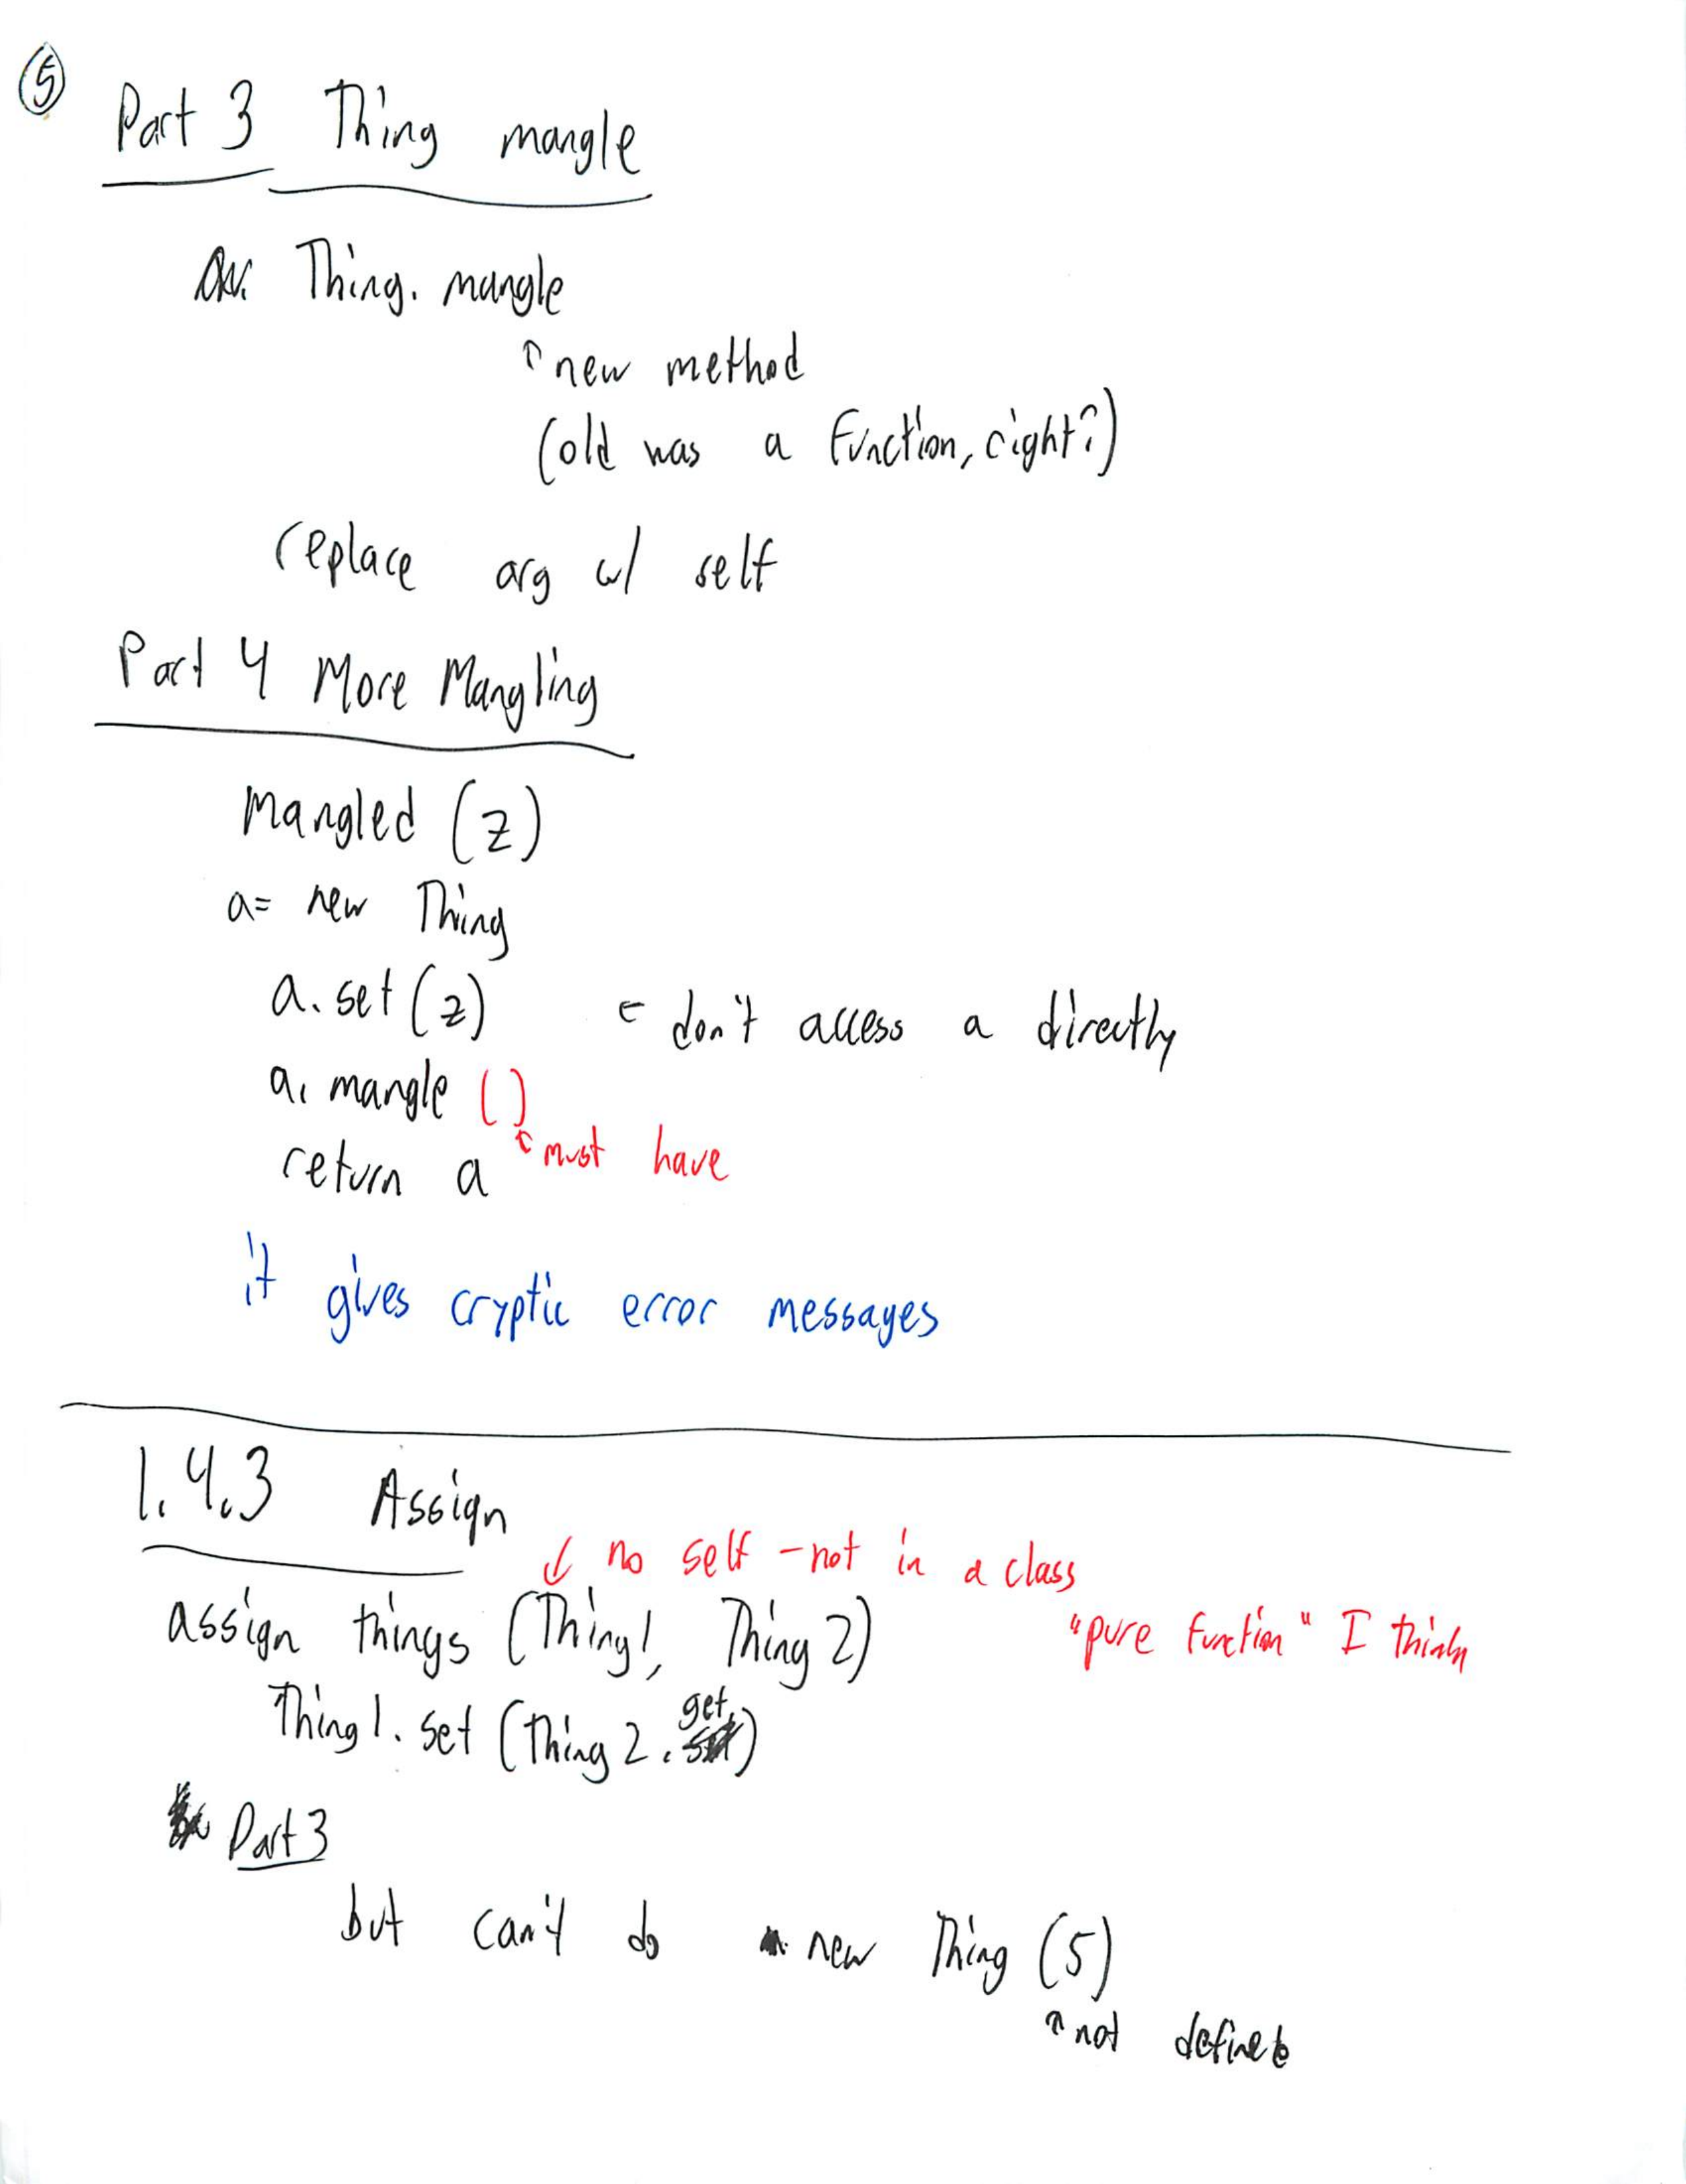 5
Part 3 Thing mangle
Thing. mangle
↑ new method
(old was a function, right?)
replace arg w/ self
Part 4 More Mangling
Mangled (z)
a= new Thing
a. set (z) ← don't access a directly
a. mangle ()
↑ must have
return a
it gives cryptic error messages
1.4.3 Assign
↓ no self - not in a class
assign things (Thing1, Thing 2)
"pure function" I think
Thing1. set (Thing 2. get)
Part 3
but can't do new Thing (5)
↑ not defined